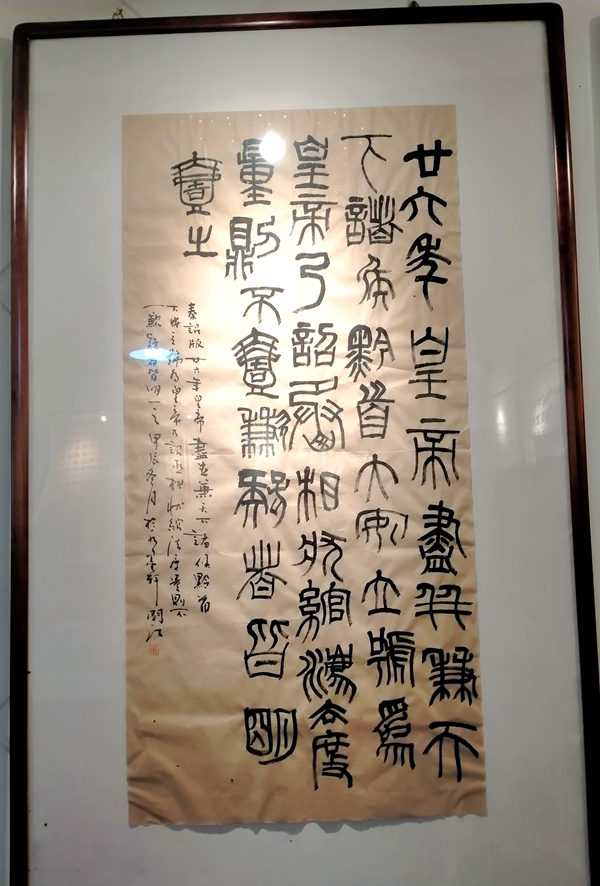 廿六年皇帝盡并兼天
下諸侯黔首大安立號為
皇帝乃詔丞相狀綰灋度
量則不壹歉疑者皆明
壹之
秦詔版廿六年皇帝盡并兼天下諸侯黔首
大安立號為皇帝乃詔丞相狀綰法度量則不
一歉疑者皆明一之甲辰冬月於墨軒